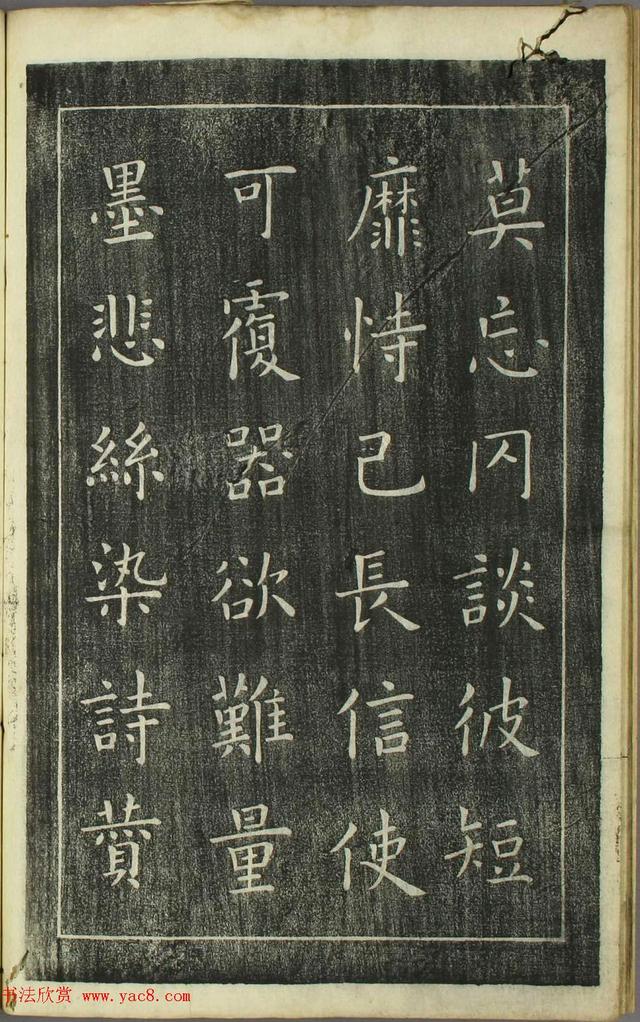 莫忘罔談彼短
靡恃己長信使
可覆器欲難量
墨悲絲染詩讃
书法欣赏 www.yac8.com